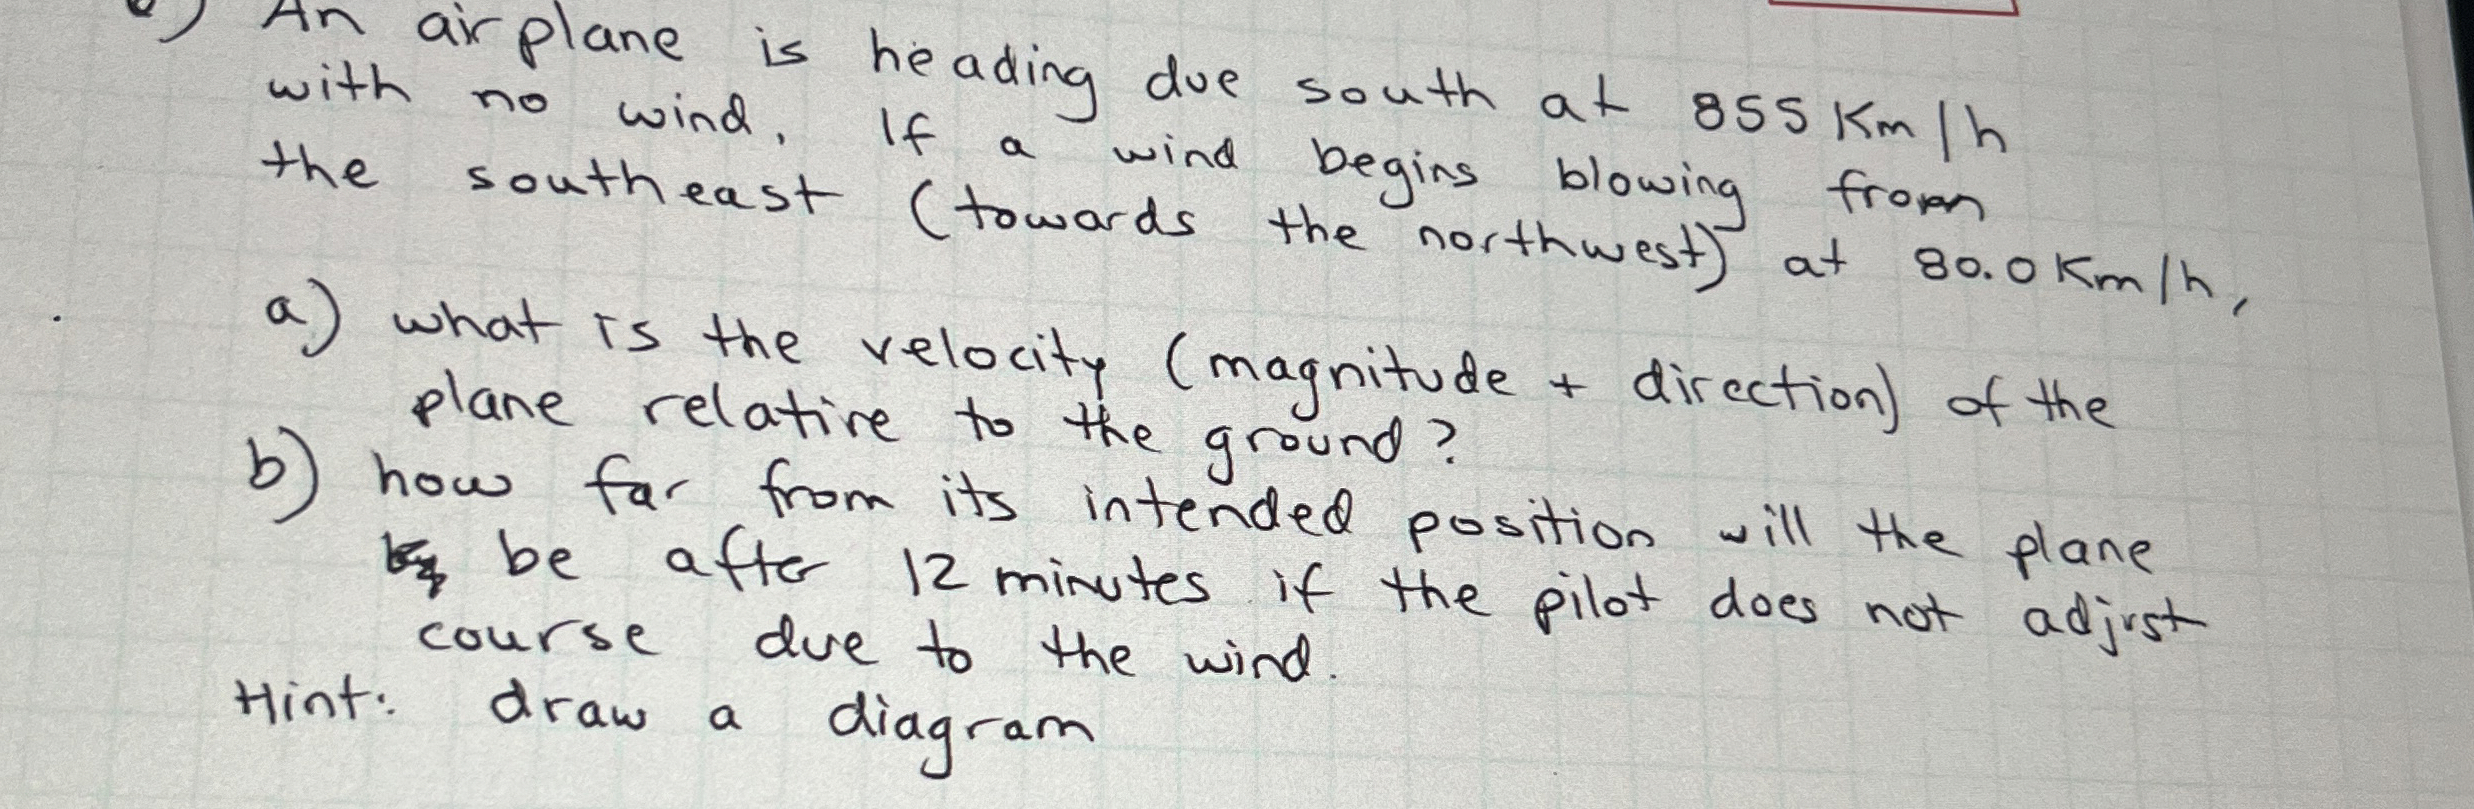 An airplane is heading due south at 855 Km/h
with no wind. If a wind begins blowing from
the southeast (towards the northwest) at 80.0 Km/h,
a) what is the velocity (magnitude + direction) of the
plane relative to the ground?
b) how far from its intended position will the plane
be after 12 minutes if the pilot does not adjust
course due to the wind.
Hint: draw a diagram